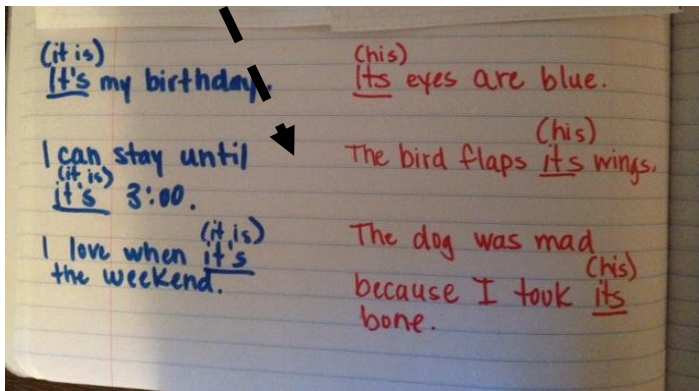 (it is)
It's my birthday.
I can stay until
(it is)
it's 3:00.
(it is)
I love when it's
the weekend.
(his)
Its eyes are blue.
(his)
The bird flaps its wings.
The dog was mad
(his)
because I took its
bone.